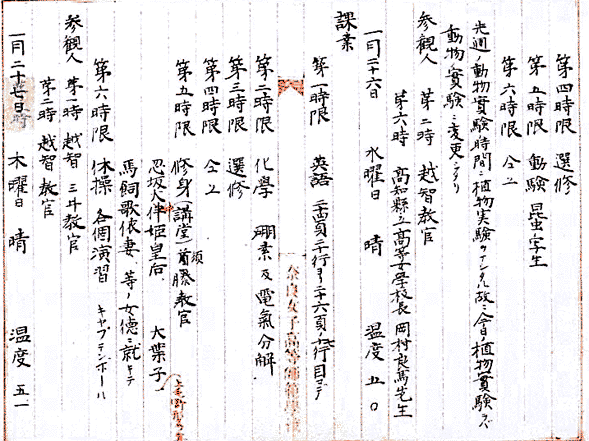 第四時限 選修
第五時限 動験 昆虫ノ写生
第六時限 仝上
先週ノ動物実験時間ニ植物実験ヲナシタル故ニ今日ノ植物實験ヲバ
動物ノ實験ニ変更シタリ
参観人 第二時 越智教官
第六時 高知縣立高等女学校長 岡村良馬先生
一月二十六日 水曜日 晴 温度 五〇
課業
第一時限 英語 二十四頁二十行ヨリ二十六頁ノ行目マデ
第二時限 化學 硼素及電氣分解
第三時限 選修
第四時限 仝上
第五時限 修身(講堂) 須藤教官
忍坂大伴姫皇后 大葉子
馬飼歌依妻 等ノ女徳ニ就キテ
第六時限 体操 各個演習 キャプテンボール
参観人 第一時 越智 三井教官
第二時 越智教官
一月二十七日 木曜日 晴 温度 五一
奈良女子高等師範學校